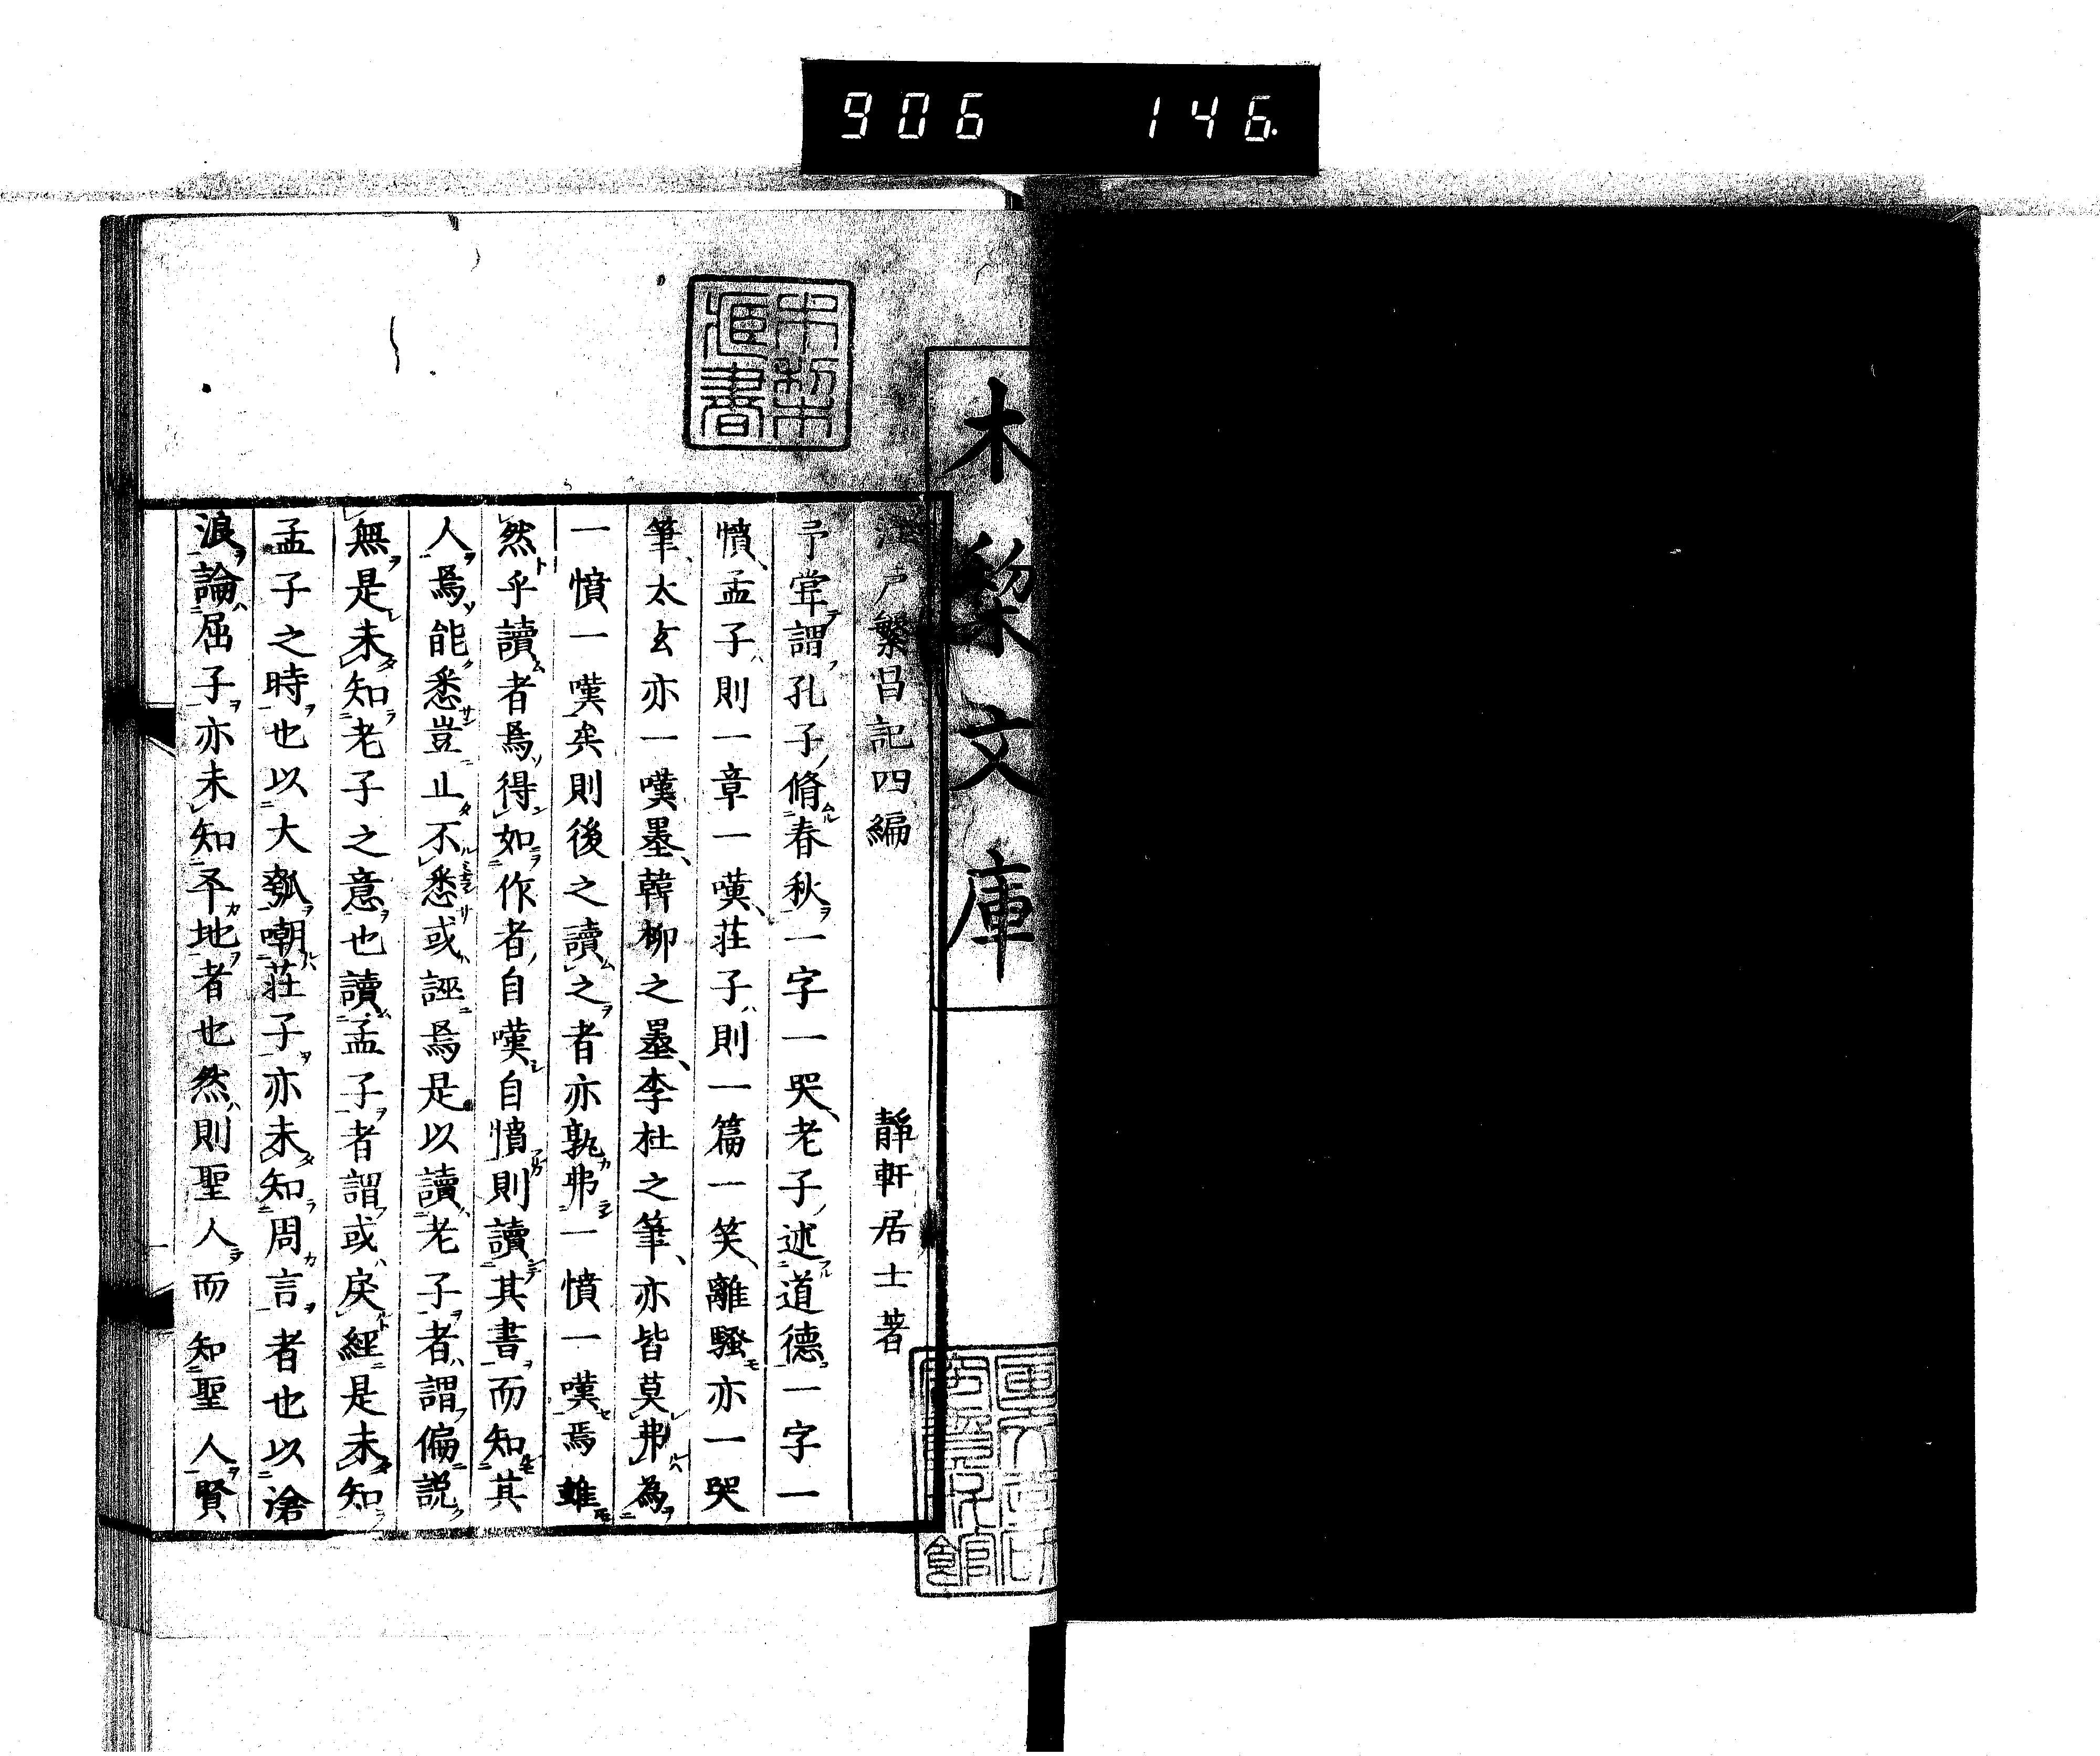 906 146
木黎文庫
江戸繁昌記四編 靜軒居士著
予甞謂孔子脩春秋一字一哭老子述道德一字一
憤孟子則一章一嘆莊子則一篇一笑離騷亦一哭
筆太玄亦一嘆墨韓柳之墨李杜之筆亦皆莫弗為
一憤一嘆矣則後之讀之者亦孰弗一憤一嘆焉雖
然乎讀者焉得如作者自嘆自憤則讀其書而知其
人焉能悉豈止不悉或誣焉是以讀老子者謂偏説
無是未知老子之意也讀孟子者謂或戾經是未知
孟子之時也以大瓠嘲莊子亦未知周言者也以滄
浪論屈子亦未知予地者也然則聖人而知聖人賢